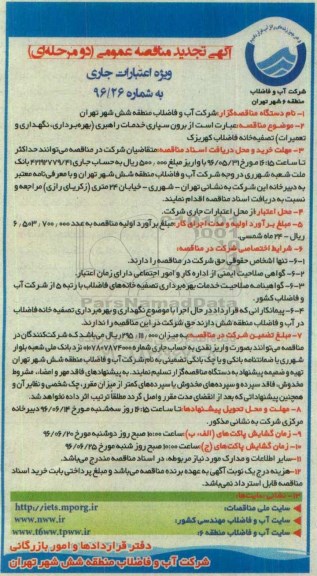 آگهی تجدید مناقصه عمومی (دو مرحله‌ای)
ویژه اعتبارات جاری
به شماره ۹۶/۲۶
شرکت آب و فاضلاب
منطقه ۶ شهر تهران
۱- نام دستگاه مناقصه‌گزار: شرکت آب و فاضلاب منطقه شش شهر تهران
۲- موضوع مناقصه: عبارت است از برون سپاری خدمات راهبری (بهره‌برداری، نگهداری و
تعمیرات) تصفیه‌خانه فاضلاب کهریزک
۳- مهلت خرید و محل دریافت اسناد مناقصه: متقاضیان شرکت در مناقصه می‌توانند حداکثر
تا ساعت ۱۶:۱۵ مورخ ۹۶/۰۵/۳۱ با واریز مبلغ ۵۰۰,۰۰۰ ریال به حساب جاری ۴۲۳۹۲۷۷۹/۴۱ بانک
ملت شعبه شهرری در وجه شرکت آب و فاضلاب منطقه شش شهر تهران و با معرفی‌نامه معتبر
به دبیرخانه این شرکت به نشانی تهران - شهرری - خیابان ۲۴ متری (زکریای رازی) مراجعه و
نسبت به دریافت اسناد مناقصه اقدام نمایند.
۴- محل اعتبار: از محل اعتبارات جاری شرکت.
۵- مبلغ برآورد اولیه و مدت اجرای کار: مبلغ برآورد اولیه مناقصه به عدد ۶,۵۰۳,۷۰۰,۰۰۰
ریال - ۲۴ ماه شمسی.
۶- شرایط اختصاصی شرکت در مناقصه:
۶-۱- تنها اشخاص حقوقی حق شرکت در مناقصه را دارند.
۶-۲- گواهی صلاحیت ایمنی از اداره کار و امور اجتماعی دارای زمان اعتبار.
۶-۳- گواهینامه صلاحیت خدمات بهره‌برداری تصفیه‌خانه‌های فاضلاب با رتبه ۵ از شرکت آب
و فاضلاب کشور.
۶-۴- پیمانکارانی که قرارداد در حال اجرا با موضوع نگهداری و بهره‌برداری تصفیه خانه فاضلاب
در آب و فاضلاب منطقه شش دارند حق شرکت در این مناقصه را ندارند.
۷- مبلغ تضمین شرکت در مناقصه: به میزان ریال می‌باشد که شرکت‌کنندگان در
مناقصه می‌توانند بصورت واریز نقدی به حساب جاری شماره نزد بانک ملی شعبه بلوار
شهرری یا ضمانتنامه بانکی و یا چک بانکی تضمینی به نام شرکت آب و فاضلاب منطقه شش شهر تهران
تهیه و ضمیمه پیشنهاد به دستگاه مناقصه‌گزار تسلیم نمایند. به پیشنهادهای فاقد مهر و امضاء، مشروط
مخدوش، فاقد سپرده و سپرده‌های مخدوش یا سپرده‌های کمتر از میزان مقرر، چک شخصی و نظایر آن و
همچنین پیشنهاداتی که بعد از انقضای مدت مقرر واصل گردد مطلقا ترتیب اثر داده نخواهد شد.
۸- مهلت و محل تحویل پیشنهادها: تا ساعت ۱۶:۱۵ روز سه‌شنبه مورخ ۹۶/۰۶/۱۴ دبیرخانه
مرکزی شرکت به نشانی مذکور.
۹- زمان گشایش پاکت‌های (الف، ب): ساعت ۱۰:۰۰ صبح روز دوشنبه مورخ ۹۶/۰۶/۲۰
۱۰- زمان گشایش پاکت‌های (ج): ساعت ۱۰:۰۰ صبح روز شنبه مورخ ۹۶/۰۶/۲۵
۱۱- سایر اطلاعات و مدارک مورد نیاز مربوطه، در اسناد مناقصه مندرج می‌باشد.
۱۲- هزینه درج یک نوبت آگهی به عهده برنده مناقصه می‌باشد و مبلغ پرداختی بابت خرید اسناد
مناقصه قابل استرداد نمی‌باشد.
۱۳- نشانی سایت‌ها:
سایت ملی مناقصات: http://iets.mporg.ir
سایت آب و فاضلاب مهندسی کشور: www.nww.ir
سایت آب و فاضلاب منطقه ۶: www.t6ww.tpww.ir
دفتر قراردادها و امور بازرگانی
شرکت آب و فاضلاب منطقه شش شهر تهران
ParsNamadData